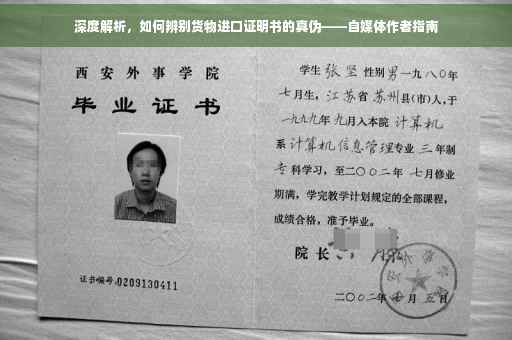 深度解析，如何辨别货物进口证明书的真伪——自媒体作者指南
西安外事学院
毕业证书
证书编号:0209130411
学生 张坚 性别 男 一九八〇年
七月生，江苏省 苏州 县(市)人,于
一九九九年 九月入本院 计算机
系 计算机信息管理 专业 三 年制
专 科学习，至二〇〇二年 七月修业
期满，学完教学计划规定的全部课程，
成绩合格，准予毕业。
院长
二〇〇二年 七月 五日